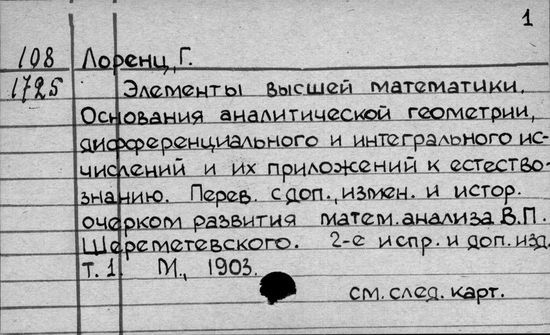 1
108 Лоренц, Г.
1725 Элементы высшей математики.
Основания аналитической геометрии,
дифференциального и интегрального ис-
числений и их приложений к естество-
знанию. Перев. с доп., измен. и истор.
очерком развития матем. анализа В.П.
Шереметевского. 2-е испр. и доп. изд.
т. 1. М., 1903.
см. след. карт.